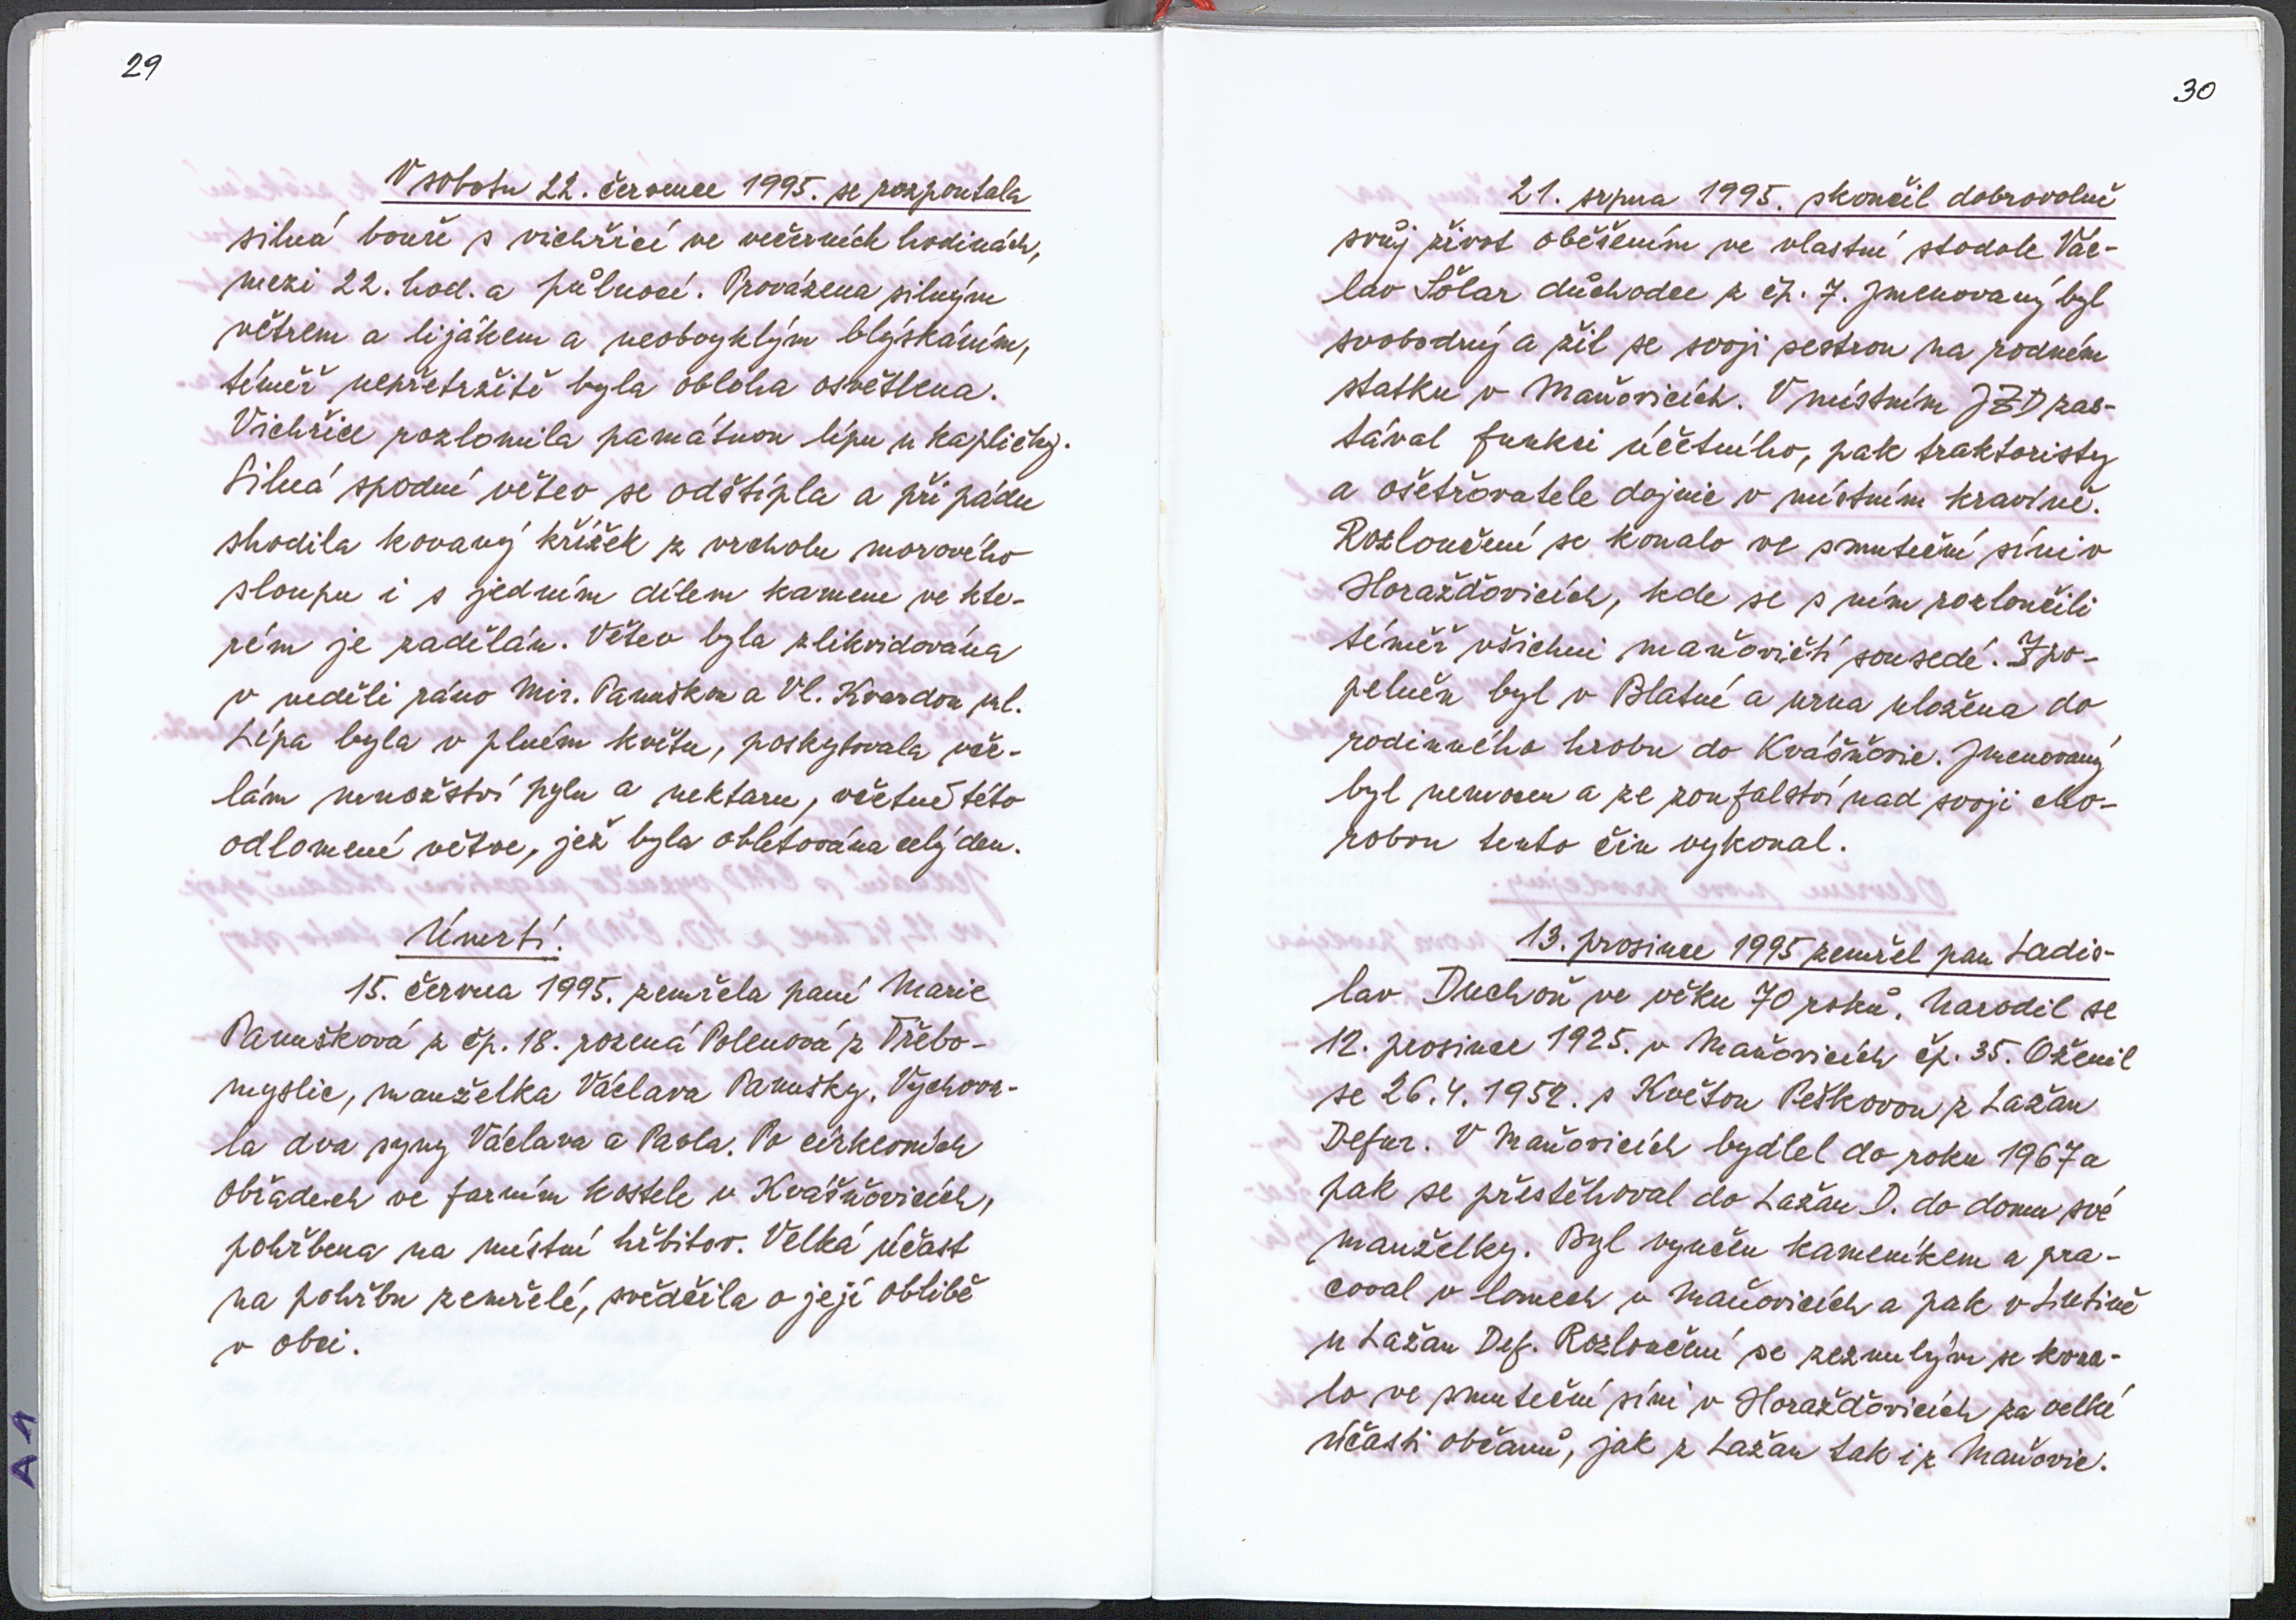 29
V sobotu 22. července 1995. se rozpoutala
silná bouře s vichřicí ve večerních hodinách,
mezi 22. hod. a půlnocí. Provázena silným
větrem a lijákem a neobvyklým blýskáním,
téměř nepřetržitě byla obloha osvětlena.
Vichřice rozlomila památnou lípu u kapličky.
Silná spodní větev se odštípla a při pádu
shodila kovaný křížek z vrcholu morového
sloupu i s jedním dílem kamene ve kte-
rém je zadělán. Větev byla zlikvidována
v neděli ráno Mir. Panuškou a Vl. Kvardou ml.
Lípa byla v plném květu, poskytovala vče-
lám množství pylu a nektaru, včetně této
odlomené větve, jež byla obletována celý den.
Úmrtí.
15. června 1995. zemřela paní Marie
Panušková z čp. 18. rozená Polenová z Třebo-
myslic, manželka Václava Panušky. Vychova-
la dva syny Václava a Pavla. Po církevních
obřadech ve farním kostele v Kvášňovicích,
pohřbena na místní hřbitov. Velká účast
na pohřbu zemřelé, svědčila o její oblibě
v obci.
A1
30
21. srpna 1995. skončil dobrovolně
svůj život oběšením ve vlastní stodole Vác-
lav Šólar důchodce z čp. 7. Jmenovaný byl
svobodný a žil se svoji sestrou na rodném
statku v Maňovicích. V místním JZD zas-
tával funkci účetního, pak traktoristy
a ošetřovatele dojnic v místním kravíně.
Rozloučení se konalo ve smuteční síni v
Horažďovicích, kde se s ním rozloučili
téměř všichni maňovičtí sousedé. Zpo-
pelněn byl v Blatné a urna uložena do
rodinného hrobu do Kvášňovic. Jmenovaný
byl nemocen a ze zoufalství nad svoji cho-
robou tento čin vykonal.
13. prosince 1995 zemřel pan Ladis-
lav Duchoň ve věku 70 roků. Narodil se
12. prosince 1925. v Maňovicích čp. 35. Oženil
se 26.4.1952. s Květou Peškovou z Lažan
Defur. V Maňovicích bydlel do roku 1967 a
pak se přestěhoval do Lažan D. do domu své
manželky. Byl vyučen kameníkem a pra-
coval v lomech v Maňovicích a pak v
u Lažan Def. Rozloučení se zesnulým se kona-
lo ve smuteční síni v Horažďovicích za velké
účasti občanů, jak z Lažan tak i z Maňovic.